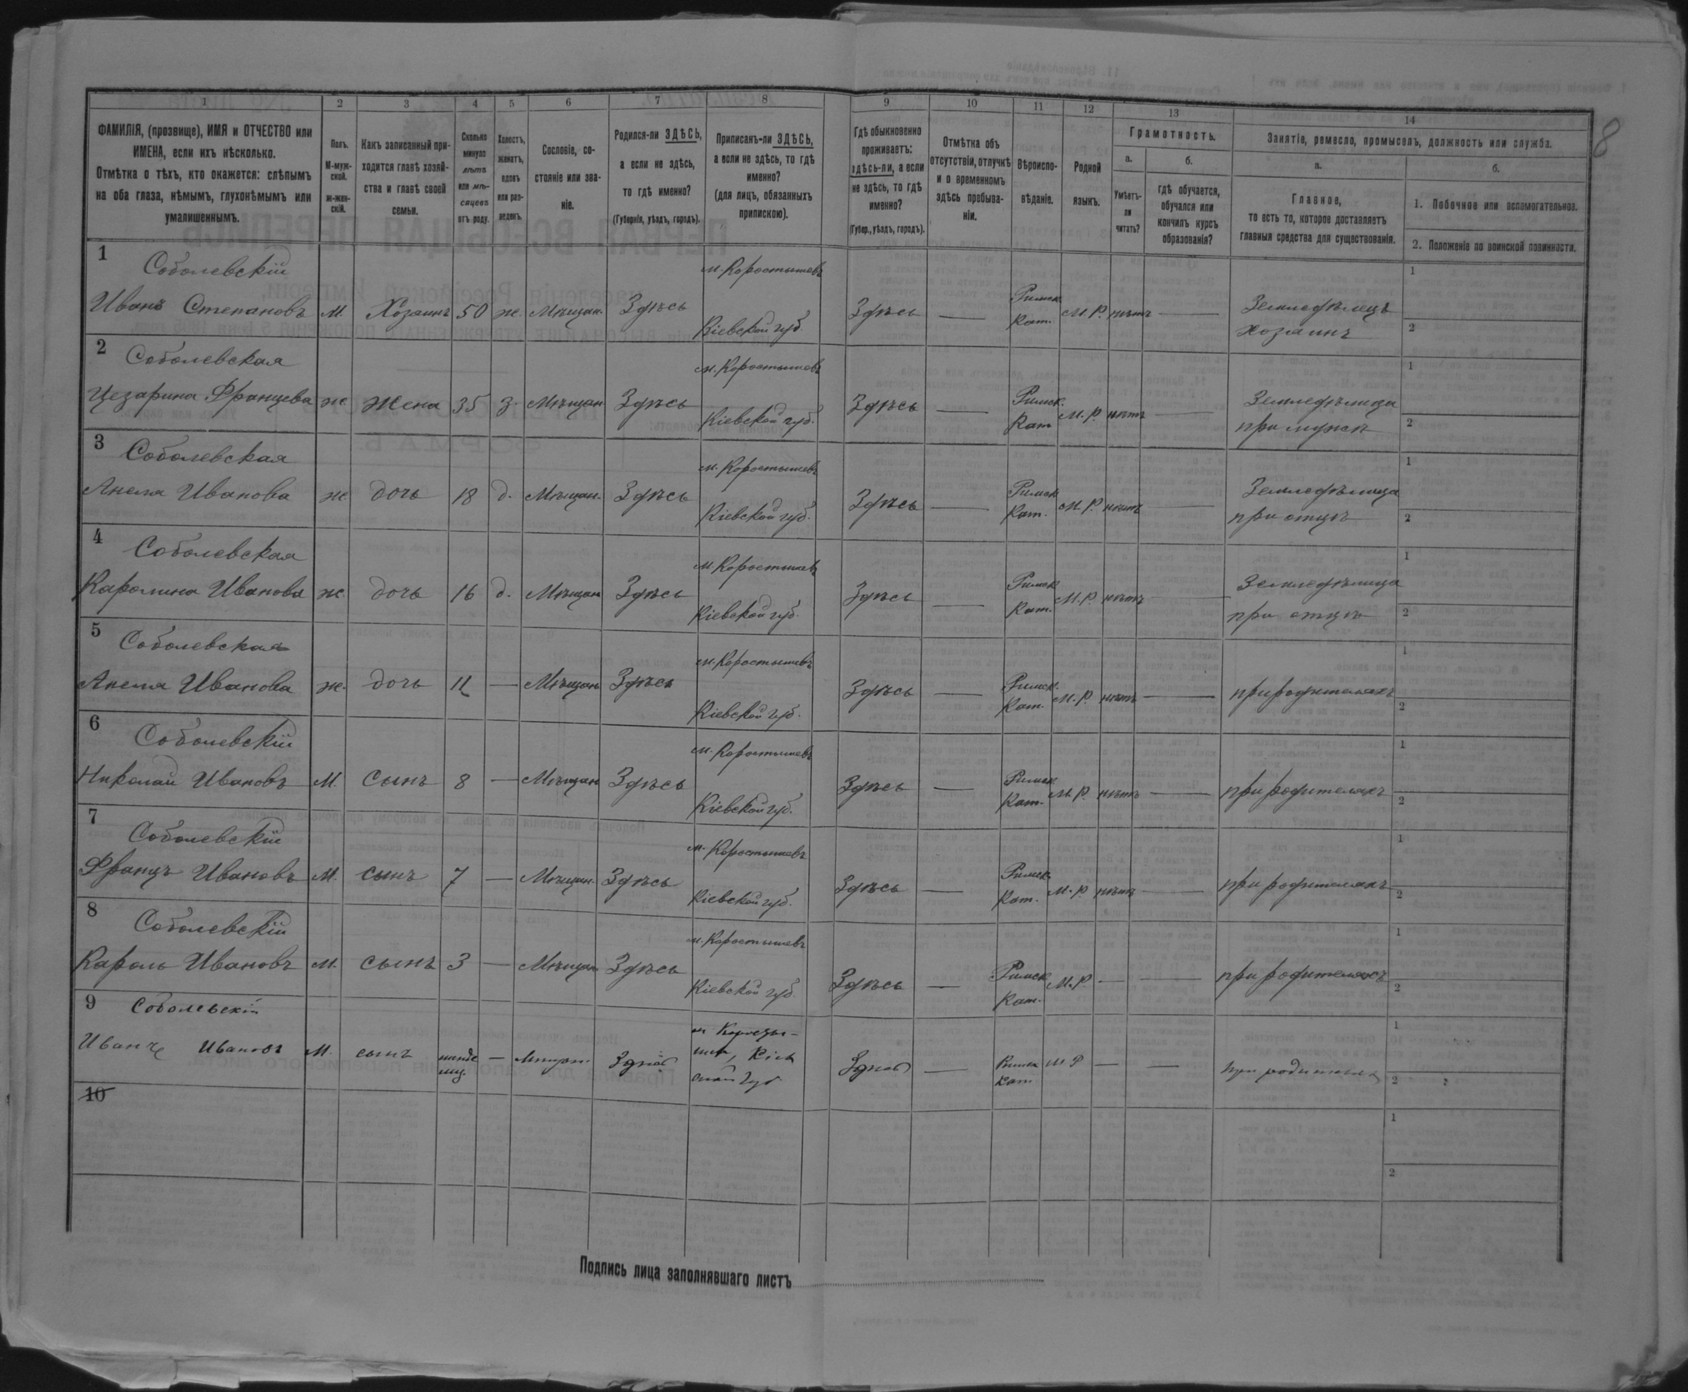 8
1 2 3 4 5 6 7 8 9 10 11 12 13 14
ФАМИЛІЯ, (прозвище), ИМЯ и ОТЧЕСТВО или
ИМЕНА, если ихъ нѣсколько.
Отмѣтка о тѣхъ, кто окажется: слѣпымъ
на оба глаза, нѣмымъ, глухонѣмымъ или
умалишеннымъ.
Полъ.
М-муж-
ской.
ж-жен-
скій.
Какъ записанный при-
ходится главѣ хозяй-
ства и главѣ своей
семьи.
Сколько
минуло
лѣтъ
или мѣ-
сяцевъ
отъ роду.
Холостъ,
женатъ,
вдовъ
или раз-
веденъ.
Сословіе, со-
стояніе или зва-
ніе.
Родился-ли ЗДѢСЬ,
а если не здѣсь,
то гдѣ именно?
(Губернія, уѣздъ, городъ).
Приписанъ-ли ЗДѢСЬ,
а если не здѣсь, то гдѣ
именно?
(для лицъ, обязанныхъ
припискою).
Гдѣ обыкновенно
проживаетъ:
здѣсь-ли, а если
не здѣсь, то гдѣ
именно?
(Губер., уѣздъ, городъ).
Отмѣтка объ
отсутствіи, отлучкѣ
и о временномъ
здѣсь пребыва-
ніи.
Вѣроиспо-
вѣданіе.
Родной
языкъ.
Грамотность.
а.
Умѣетъ-
ли
читать?
б.
гдѣ обучается,
обучался или
кончилъ курсъ
образованія?
Занятіе, ремесло, промыселъ, должность или служба.
а.
Главное,
то есть то, которое доставляетъ
главныя средства для существованія.
б.
1. Побочное или вспомогательное.
2. Положеніе по воинской повинности.
1 Соболевскій м. Коростышевъ 1
Иванъ Степановъ М Хозяинъ 50 ж. Мѣщан. Здѣсь Кіевской губ Здѣсь — Римск. Кат. М. Р. нѣтъ — Земледѣлецъ хозяинъ 2
2 Соболевская м. Коростышевъ 1
Цезарина Францева ж жена 35 з. Мѣщан Здѣсь Кіевской губ. Здѣсь — Римск. Кат М. Р. нѣтъ — Земледѣлица при мужѣ 2
3 Соболевская м. Коростышевъ 1
Анеля Иванова ж дочь 18 д. Мѣщан. Здѣсь Кіевской губ. Здѣсь — Римск. Кат. М. Р. нѣтъ — Земледѣлица при отцѣ 2
4 Соболевская м Коростышевъ 1
Каролина Иванова ж дочь 16 д. Мѣщан Здѣсь Кіевской губ. Здѣсь — Римск. Кат. М. Р. нѣтъ — Земледѣлица при отцѣ 2
5 Соболевская м. Коростышевъ 1
Анеля Иванова ж. дочь 11 — Мѣщан Здѣсь Кіевской губ. Здѣсь — Римск. Кат. М. Р. нѣтъ — при родителяхъ 2
6 Соболевскій м. Коростышевъ 1
Николай Ивановъ М. сынъ 8 — Мѣщан Здѣсь Кіевской губ. Здѣсь — Римск. Кат. М. Р. нѣтъ — при родителяхъ 2
7 Соболевскій м. Коростышевъ 1
Францъ Ивановъ М. сынъ 7 — Мѣщан. Здѣсь Кіевской губ. Здѣсь — Римск. Кат. М. Р. нѣтъ — при родителяхъ 2
8 Соболевскій м. Коростышевъ 1
Кароль Ивановъ М. сынъ 3 — Мѣщан Здѣсь Кіевской губ Здѣсь — Римск. Кат. М. Р — — при родителяхъ 2
9 Соболевскій 1
Иванъ Ивановъ М. сынъ — Мѣщан Здѣсь Здѣсь — Римск Кат М Р — — при родителя 2
10 1
2
Подпись лица заполнявшаго листъ